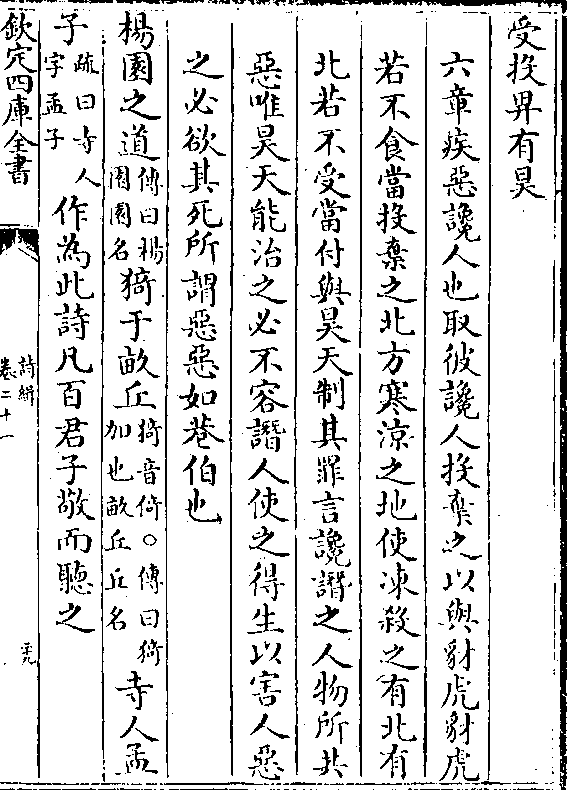 受投畀有昊
六章疾惡讒人也取彼讒人投棄之以與豺虎豺虎
若不食當投棄之北方寒涼之地使凍殺之有北有
北若不受當付與昊天制其罪言讒譖之人物所共
惡唯昊天能治之必不容譖人使之得生以害人惡
之必欲其死所謂惡惡如巷伯也
楊園之道傳曰楊園園名猗于畝丘猗音倚○傳曰猗加也畝丘丘名寺人孟
子疏曰寺人字孟子作為此詩凡百君子敬而聽之
欽定四庫全書
詩緝
卷二十一
三九